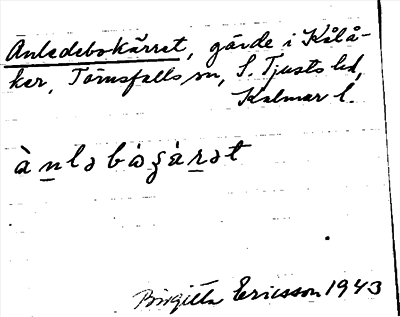 Änledebokärret, gärde i Kålå-
ker, Törnsfalls sn, S. Tjusts hd,
Kalmar l.
Birgitta Ericsson 1943